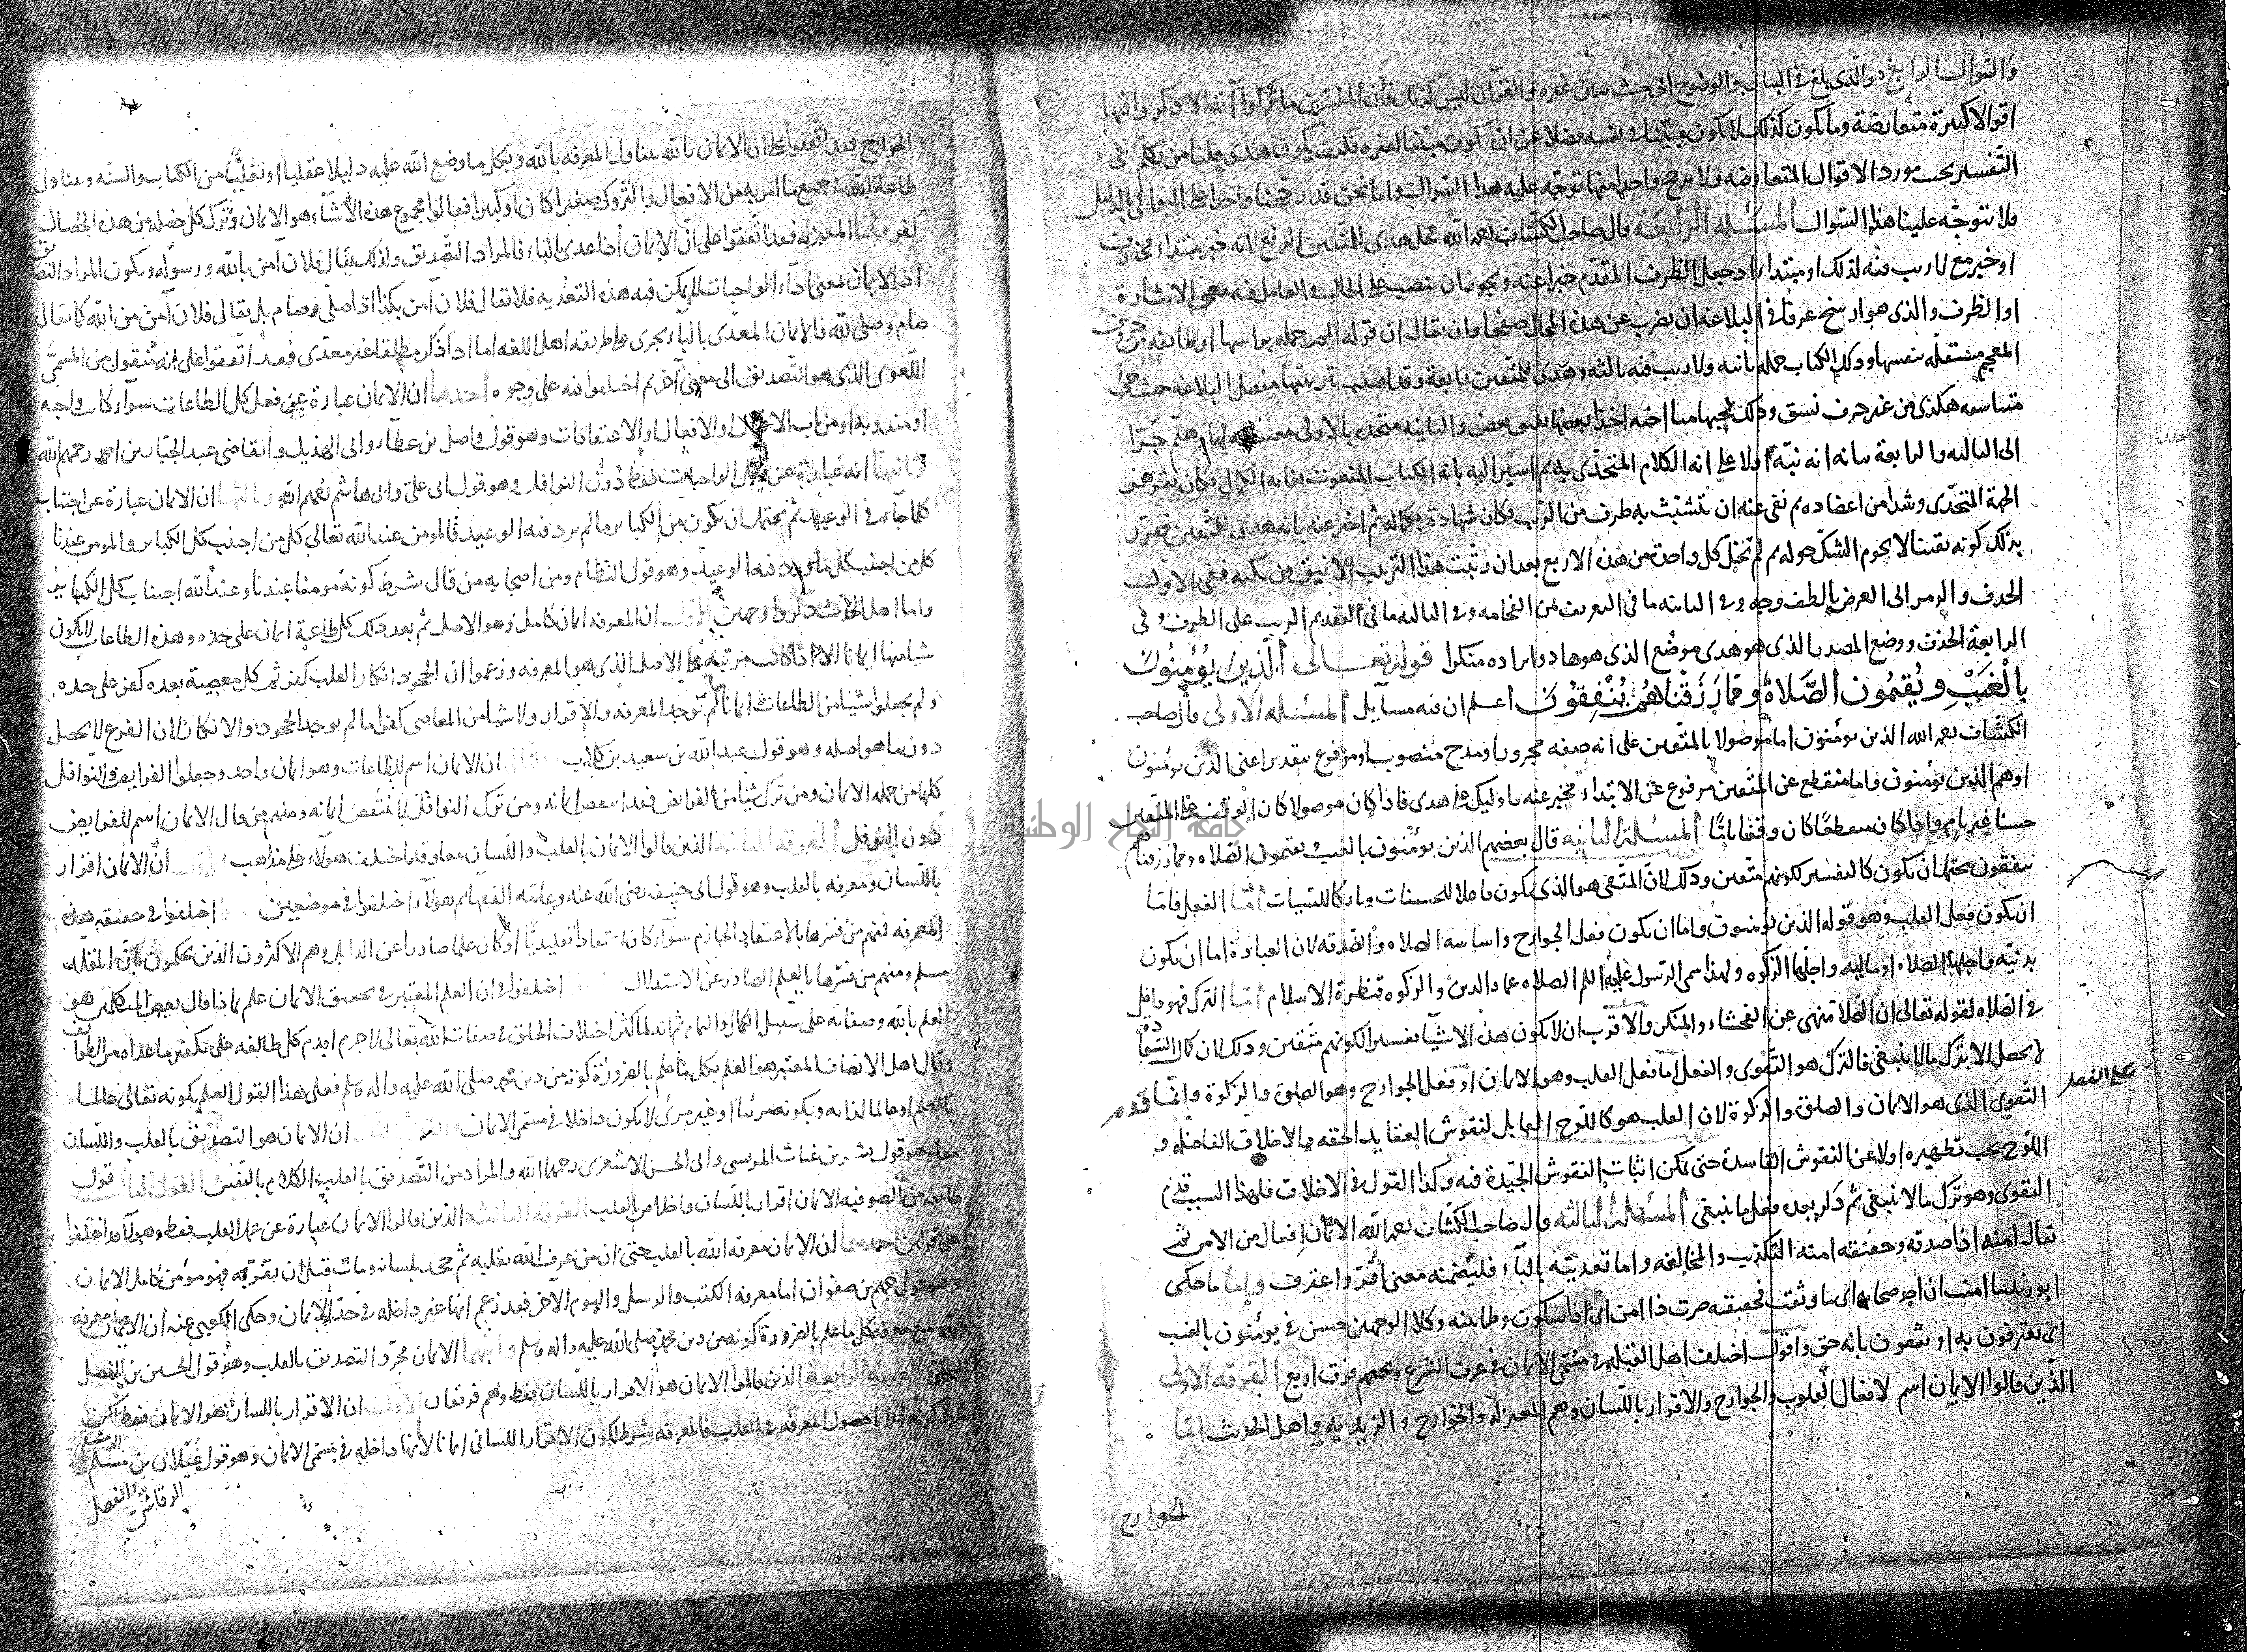 والسؤال الرابع هو الذي بلغ في البيان والوضوح الى حيث يبين غيره والقرآن ليس كذلك فان المفسرين ما تركوا آية الا ذكروا فيها
اقوالا كثيرة متعارضة وما يكون كذلك لا يكون مبينا في نفسه فضلا عن ان يكون مبينا لغيره فكيف يكون هدى قلنا من تكلم في
التفسير بحيث يورد الاقوال المتعارضه ولا يرجح واحدا منها توجه عليه هذا السؤال واما نحن قد رجحنا واحدا على البواقي بالدليل
فلا يتوجه علينا هذا السؤال المسئله الرابعة قال صاحب الكشاف رحمه الله محل هدى للمتقين الرفع لانه خبر مبتداء محذوف
او خبر مع لا ريب فيه لذلك او مبتداء اذ جعل الظرف المقدم خبرا عنه ويجوز ان ينصب على الحال والعامل فيه معنى الاشارة
او الظرف والذي هو ارسخ عرقا في البلاغه ان يضرب عن هذه المحال صفحا وان يقال ان قوله الم جمله براسها او طايفه من حروف
المعجم مستقله بنفسها وذلك الكتاب جمله ثانيه ولا ريب فيه ثالثه وهدى للمتقين رابعة وقد اصيب بترتيبها مفصل البلاغه حيث جئ
متناسقه هكذى من غير حرف نسق وذلك لمجيها متاخيه اخذا بعضها بعنق بعض والثانيه متحده بالاولى معتنقه لها وهلم جرا
الى الثالثه والرابعة بيانه انه نبه اولا على انه الكلام المتحدى به ثم اشير اليه بانه الكتاب المنعوت بغايه الكمال فكان تقريرا
لجهة التحدى وشدا من اعضاده ثم نفى عنه ان يتشبث به طرف من الريب فكان شهادة بكماله ثم اخبر عنه بانه هدى للمتقين فقرر
بذلك كونه يقينا لا يحوم الشك حوله ثم لم تخل كل واحدة من هذه الاربع بعد ان رتبت هذا الترتيب الانيق من نكته ففي الاولى
الحذف والرمز الى الغرض بالطف وجه وفي الثانيه ما في التعريف من الفخامه وفي الثالثه ما في تقديم الريب على الظرف وفي
الرابعة الحذف ووضع المصدر الذي هو هدى موضع الذي هو هاد وايراده منكرا قوله تعالى الذين يؤمنون
بالغيب ويقيمون الصلاة ومما رزقناهم ينفقون اعلم ان فيه مسايل المسئله الاولى قال صاحب
الكشاف رحمه الله الذين يؤمنون اما موصولا بالمتقين على انه صفه مجرورا او مدح منصوب او مرفوع بتقدير اعنى الذين يؤمنون
او هم الذين يؤمنون واما منقطع عن المتقين مرفوع عن الابتداء مخبر عنه باوليك على هدى فاذا كان موصولا كان الوقف على المتقين
حسنا غير تام واذا كان منقطعا كان وقفا تاما المسئله الثانية قال بعضهم الذين يؤمنون بالغيب ويقيمون الصلاه ومما رزقناهم
ينفقون يحتمل ان يكون كالتفسير لكونهم متقين وذلك لان المتقي هو الذي يكون فاعلا للحسنات وتاركا للسيات اما الفعل فاما
ان يكون فعل القلب وهو قوله الذين يؤمنون واما ان يكون فعل الجوارح واساسه الصلاه والصدقه لان العبادة اما ان يكون
بدنيه واجلها الصلاه او ماليه واجلها الزكوه ولهذا سمى الرسول عليه السلم الصلاه عماد الدين والزكوه قنطرة الاسلام اما الترك فهو داخل
في الصلاه لقوله تعالى ان الصلاة تنهى عن الفحشاء والمنكر والاقرب ان لا يكون هذه الاشيآ تفسيرا لكونهم متقين وذلك لان كمال السعادة
لا يحصل الا بترك ما لا ينبغي فالترك هو التقوى والفعل اما فعل القلب وهو الايمان او فعل الجوارح وهو الصلوة والزكوة وانما قدم
على الفعل
التقوى الذي هو الايمان والصلوة والزكوة لان القلب هو كاللوح القابل لنقوش العقايد الحقه والاخلاق الفاضله و
اللوح يجب تطهيره اولا عن النقوش الفاسدة حتى يمكن اثبات النقوش الجيدة فيه وكذا القول في الاخلاق فلهذا السبب قدم
التقوى وهو ترك ما لا ينبغي ثم ذكر بعده فعل ما ينبغي المسئلة الثالثه قال صاحب الكشاف رحمه الله الايمان افعال من الامن ثم
يقال امنه اذا صدقه وحقيقته امنه التكذيب والمخالفه واما تعديته بالباء فلتضمنه معنى اقر واعترف واما ما حكى
ابو زيد ما امنت ان اجد صحابه اى ما وثقت فحقيقته صرت ذا امن اى ذا سكون وطمانينه وكلا الوجهين حسن في يؤمنون بالغيب
اى يعترفون به او يثقون بانه حق واقول اختلف اهل القبله في مسمى الايمان في عرف الشرع ويجمعهم فرق اربع الفرقه الاولى
الذين قالوا الايمان اسم لافعال القلوب والجوارح والاقرار باللسان وهم المعتزله والخوارج والزيديه واهل الحديث اما
الخوارج
الخوارج فقد اتفقوا على ان الايمان بالله يتناول المعرفه بالله وبكل ما وضع الله عليه دليلا عقليا او نقليا من الكتاب والسنه ويتناول
طاعة الله في جميع ما امر به من الافعال والتروك صغيرا كان او كبيرا فقالوا مجموع هذه الاشياء هو الايمان وترك كل خصله من هذه الخصال
كفر واما المعتزله فقد اتفقوا على ان الايمان اذا عدى بالباء فالمراد التصديق ولذلك يقال فلان آمن بالله ورسوله ويكون المراد التصديق
اذ الايمان بمعنى اداء الواجبات لا يمكن فيه هذه التعديه فلا يقال فلان آمن بكذا اذا صلى وصام بل يقال فلان آمن من الله كما يقال
صام وصلى لله فالايمان المعدى بالباء يجرى على طريقه اهل اللغه اما اذا ذكر مطلقا غير معدى فقد اتفقوا على انه منقول من المسمى
اللغوى الذي هو التصديق الى معنى آخر ثم اختلفوا فيه على وجوه احدها ان الايمان عبارة عن فعل كل الطاعات سوآء كانت واجبه
او مندوبه او من باب الاقوال والافعال او الاعتقادات وهو قول واصل بن عطاء وابى الهذيل والقاضى عبد الجبار بن احمد رحمهم الله
وثانيها انه عبارة عن فعل الواجبات فقط دون النوافل وهو قول ابى على وابى هاشم رحمهم الله وثالثها ان الايمان عبارة عن اجتناب
كلما جاء في الوعيد ثم يحتمل ان يكون من الكباير ما لم يرد فيه الوعيد فالمؤمن عند الله تعالى كل من اجتنب كل الكباير والمومن عندنا
كل من اجتنب كل ما ورد فيه الوعيد وهو قول النظام ومن اصحابه من قال شرط كونه مومنا عندنا وعند الله اجتناب كل الكباير
واما اهل الحديث ذكروا وجهين الاول ان المعرفه ايمان كامل وهو الاصل ثم بعد ذلك كل طاعة ايمان على حده وهذه الطاعات لا يكون
شيا منها ايمانا الا اذا كانت مرتبه على الاصل الذي هو المعرفه وزعموا ان الجحود وانكار القلب كفر ثم كل معصية بعده كفر على حده
ولم يجعلوا شيا من الطاعات ايمانا ما لم توجد المعرفه والاقرار ولا شيا من المعاصى كفرا ما لم يوجد الجحود والانكار لان الفرع لا يحصل
دون ما هو اصله وهو قول عبد الله بن سعيد بن كلاب الثاني ان الايمان اسم للطاعات وهو ايمان واحد وجعلوا الفرايض والنوافل
كلها من جمله الايمان ومن ترك شيا من الفرايض فقد انتقص ايمانه ومن ترك النوافل لا ينتقص ايمانه ومنهم من قال الايمان اسم للفرايض
دون النوافل الفرقه الثانية الذين قالوا الايمان بالقلب واللسان معا وقد اختلف هولاء على مذاهب الاول ان الايمان اقرار
باللسان ومعرفه بالقلب وهو قول ابى حنيفه رضى الله عنه وعامه الفقهاء ثم هولاء اختلفوا في موضعين اختلفوا في حقيقه هذه
المعرفه فمنهم من فسرها بالاعتقاد الجازم سوآء كان اعتقادا تقليديا او كان علما صادرا عن الدليل وهم الاكثرون الذين يحكمون بان المقلد
مسلم ومنهم من فسرها بالعلم الصادر عن الاستدلال اختلفوا في ان العلم المعتبر في تحقيق الايمان علم بماذا قال بعض المتكلمين هو
العلم بالله وصفاته على سبيل الكمال والتمام ثم انه لما كثر اختلاف الخلق في صفات الله تعالى لا جرم اقدم كل طائفه على تكفير ما عداه من الطوايف
وقال اهل الانصاف المعتبر هو العلم بكل ما علم بالضرورة كونه من دين محمد صلى الله عليه واله وسلم فعلى هذا القول العلم بكونه تعالى عالما
بالعلم او عالما لذاته وبكونه مرئيا او غير مرئى لا يكون داخلا في مسمى الايمان والقول الثاني ان الايمان هو التصديق بالقلب واللسان
معا وهو قول بشر بن غياث المريسى وابى الحسن الاشعرى رحمهما الله والمراد من التصديق بالقلب الكلام بالنفس القول الثالث قول
طائفه من الصوفيه الايمان اقرار باللسان واخلاص القلب الفرقه الثالثه الذين قالوا الايمان عبارة عن عمل القلب فقط وهولاء قد اختلفوا
على قولين احدهما ان الايمان معرفه الله بالقلب حتى ان من عرف الله بقلبه ثم جحد بلسانه ومات قبل ان يقر به فهو مؤمن كامل الايمان
وهو قول جهم بن صفوان اما معرفه الكتب والرسل واليوم الآخر فقد زعم انها غير داخله في حد الايمان وحكى الكعبى عنه ان الايمان معرفه
الله مع معرفه كل ما علم بالضرورة كونه من دين محمد صلى الله عليه واله وسلم وثانيهما الايمان مجرد التصديق بالقلب وهو قول الحسين بن الفضل
البجلى الفرقه الرابعة الذين قالوا الايمان هو الاقرار باللسان فقط وهم فرقتان الاولى ان الاقرار باللسان هو الايمان فقط لكن
شرط كونه ايمانا حصول المعرفه في القلب فالمعرفه شرط لكون الاقرار اللسانى ايمانا لا انها داخله في مسمى الايمان وهو قول غيلان بن مسلم
الدمشقى
والفضل
الرقاشى
جامعة النجاح الوطنية